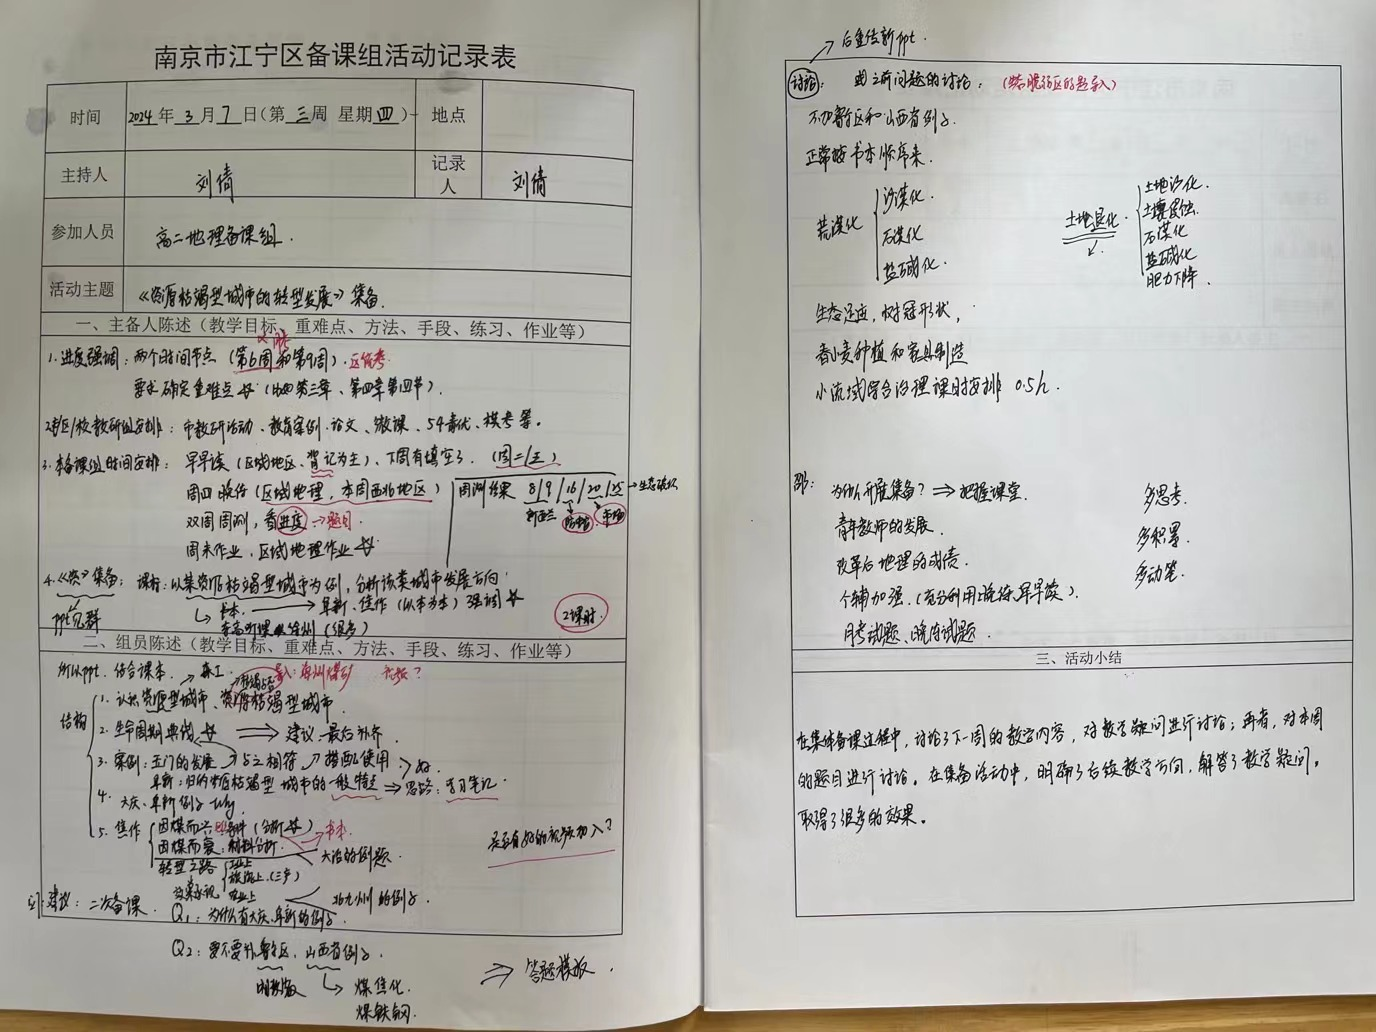 南京市江宁区备课组活动记录表
时间 2024年3月7日(第三周 星期四) 地点
主持人 刘倩 记录人 刘倩
参加人员 高二地理备课组.
活动主题 《资源枯竭型城市的转型发展》集备.
一、主备人陈述（教学目标、重难点、方法、手段、练习、作业等）
1.进度强调：两个时间节点（第6周和第9周）.
要求确定重难点（比如第三章、第四章第四节）.
教研组安排：市教研活动、教育案例、论文、微课、54青优、模考等。
3.本备课组时间安排：早早读（区域地区、背记为主）、下周有填空了.（周二/五）
周四晚修（区域地理，本周西北地区）
周测结果 8/9/16/20/25→生态
双周周测，看进度→题目
周末作业，区域地理作业
4.《资》集备：课标：以某资源枯竭型城市为例，分析该类城市发展方向
课本→阜新、焦作（以本为本）强调
ppt见群
徐州（很多）
2课时.
二、组员陈述（教学目标、重难点、方法、手段、练习、作业等）
所以ppt.结合课本.
结构
1.认识资源型城市、资源枯竭型城市.
2.生命周期曲线⇒建议最后补齐.
3.案例：玉门的发展 与之相符 搭配使用
阜新：归纳资源枯竭型城市的一般特点⇒思路：学习笔记
4.大庆、阜新例子 why.
5.焦作
因煤而兴 条件（分析
因煤而衰：材料分析. 书本.
转型之路 工业上
旅游上.（三产）
农业上
大冶的例题.
是否有好的视频切入？
北九州的例子.
问：建议：二次备课.
Q1：为什么有大庆.阜新的例子.
Q2：要不要补鲁尔区，山西省例子.
煤焦化.
煤铁钢.
⇒答题模板.
后重传新ppt.
讨论：由之前问题的讨论：
不加鲁尔区和山西省例子.
正常按书本顺序来.
荒漠化
沙漠化.
石漠化.
盐碱化.
土地退化.
土地沙化.
土壤侵蚀.
石漠化
盐碱化
肥力下降.
生态适应，树冠形状，
春小麦种植和家具制造
小流域综合治理课时安排 0.5h.
邵：为什么开展集备？⇒把握课堂.
青年教师的发展.
改革后地理的成绩.
个辅加强.（充分利用晚修、早早读）.
月考试题、晚修试题.
多思考.
多积累.
多动笔.
三、活动小结
在集体备课过程中，讨论了下一周的教学内容，对教学疑问进行讨论；再者，对本周
的题目进行讨论。在集备活动中，明确了后续教学方向，解答了教学疑问。
取得了很多的效果。